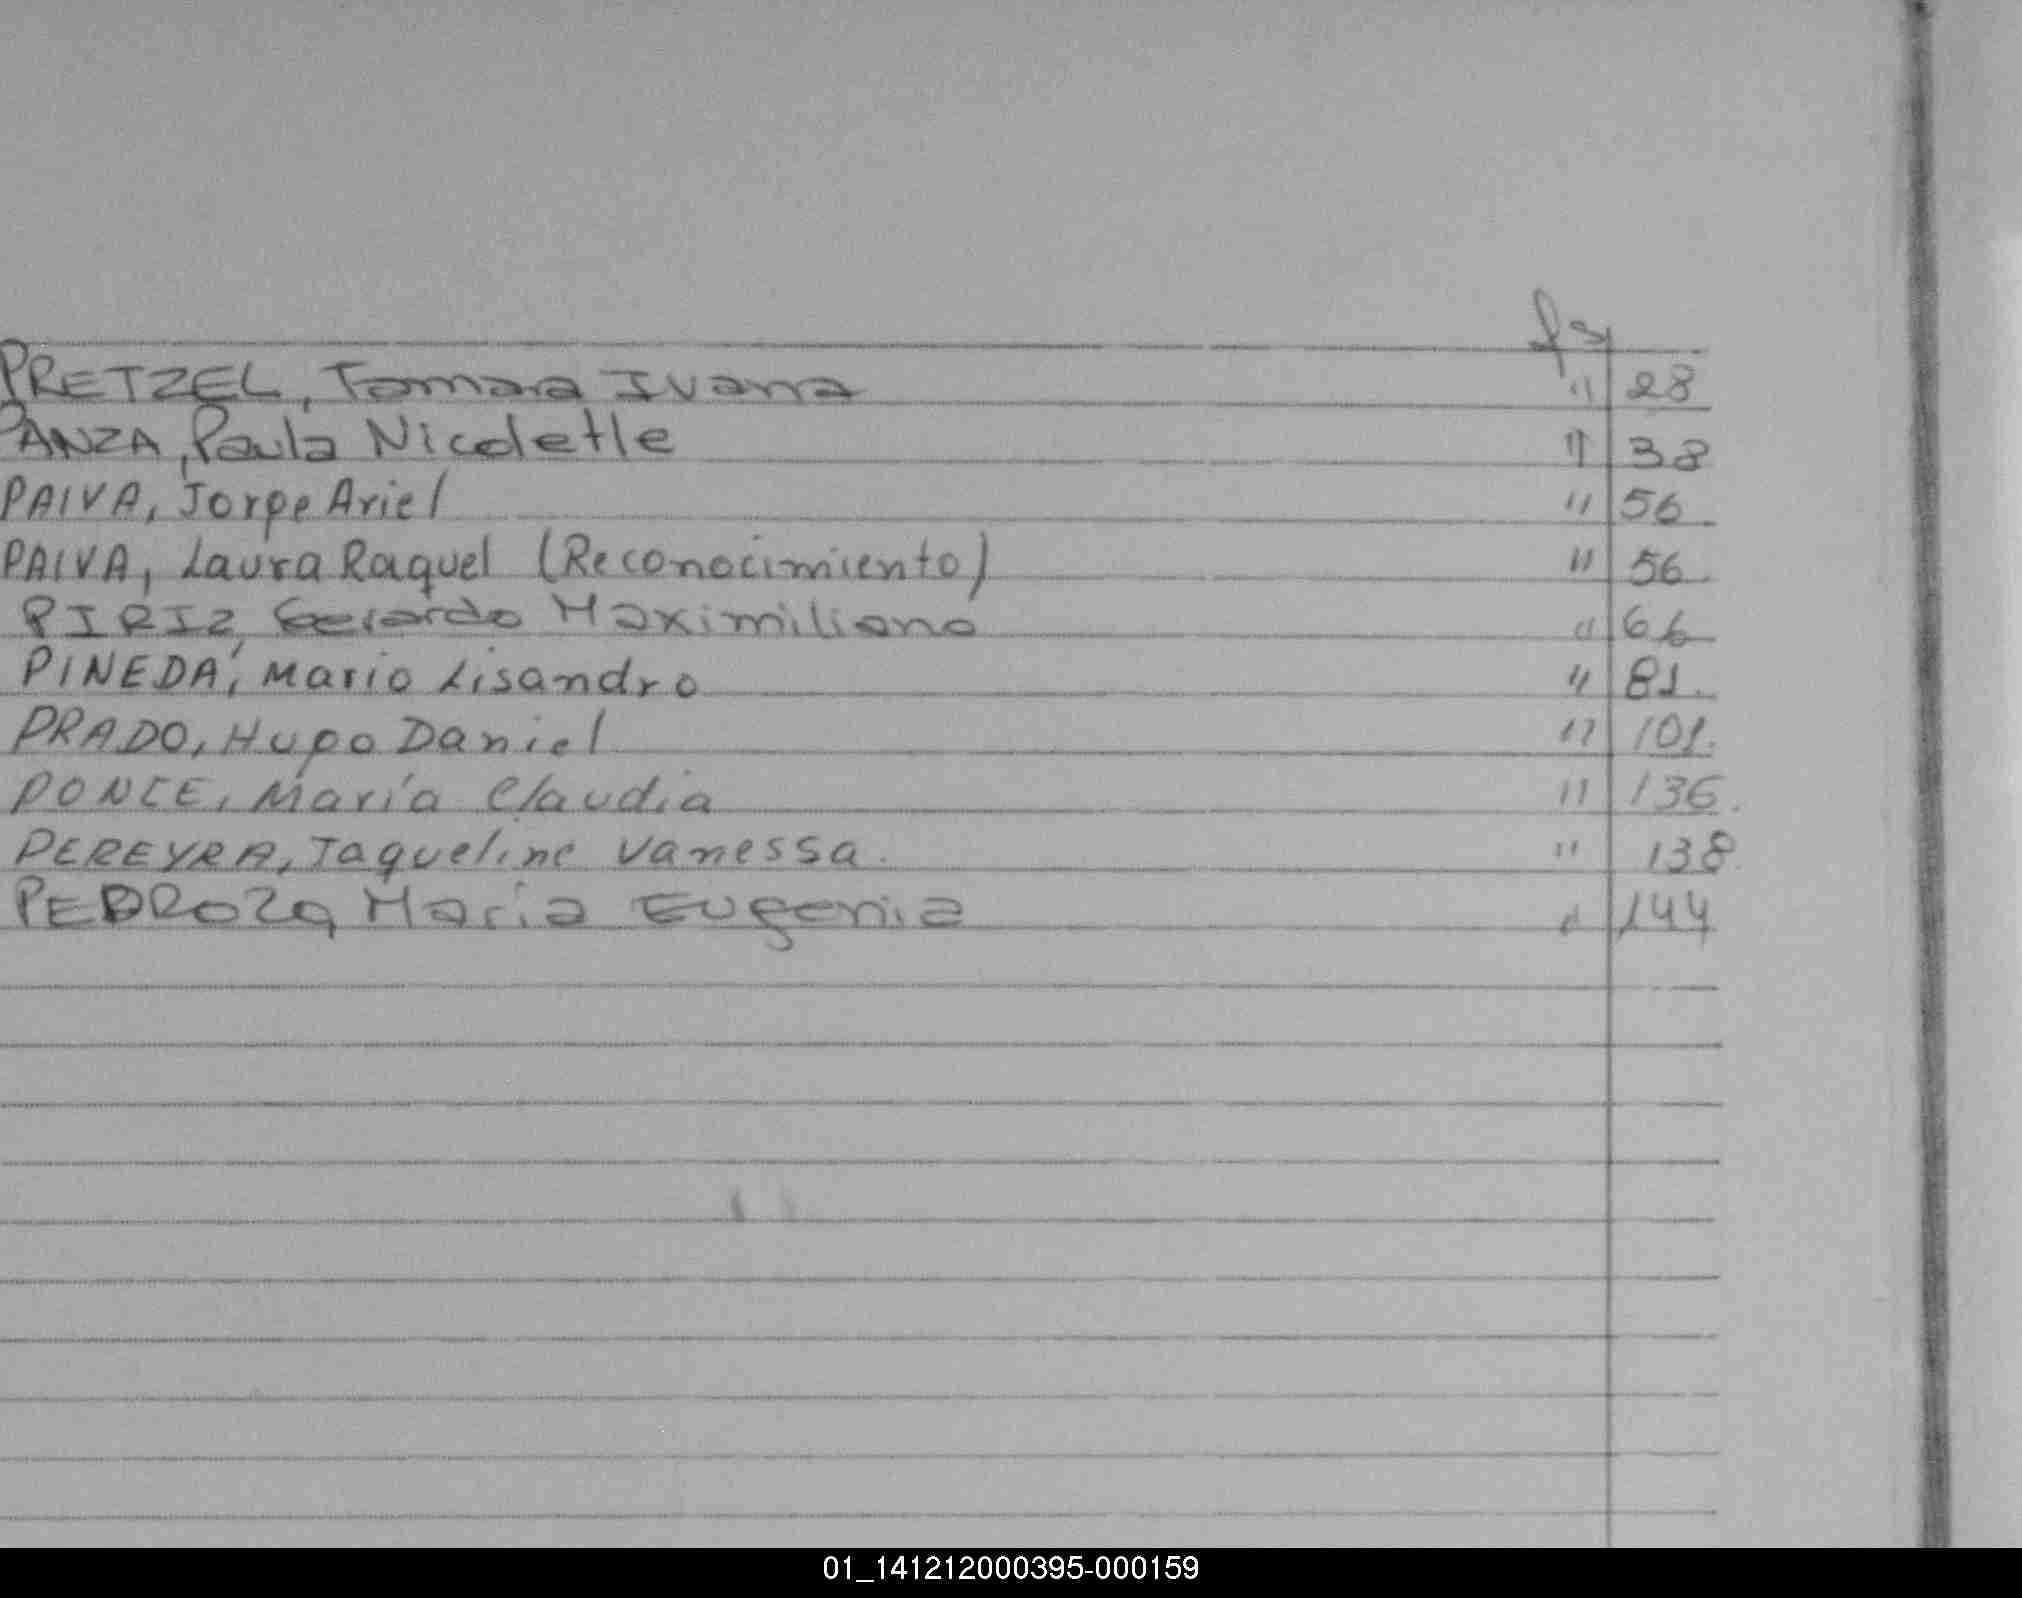 fs
PRETZEL, Tamara Ivana " 28
PANZA, Paula Nicoletle " 38
PAIVA, Jorge Ariel " 56
PAIVA, Laura Raquel (Reconocimiento) " 56
PIRIZ, Gerardo Maximiliano " 66
PINEDA, Mario Lisandro " 81.
PRADO, Hugo Daniel " 101.
PONCE, María Claudia " 136.
PEREYRA, Jaqueline Vanessa. " 138
PEDROZA, María Eugenia " 144
01_141212000395-000159